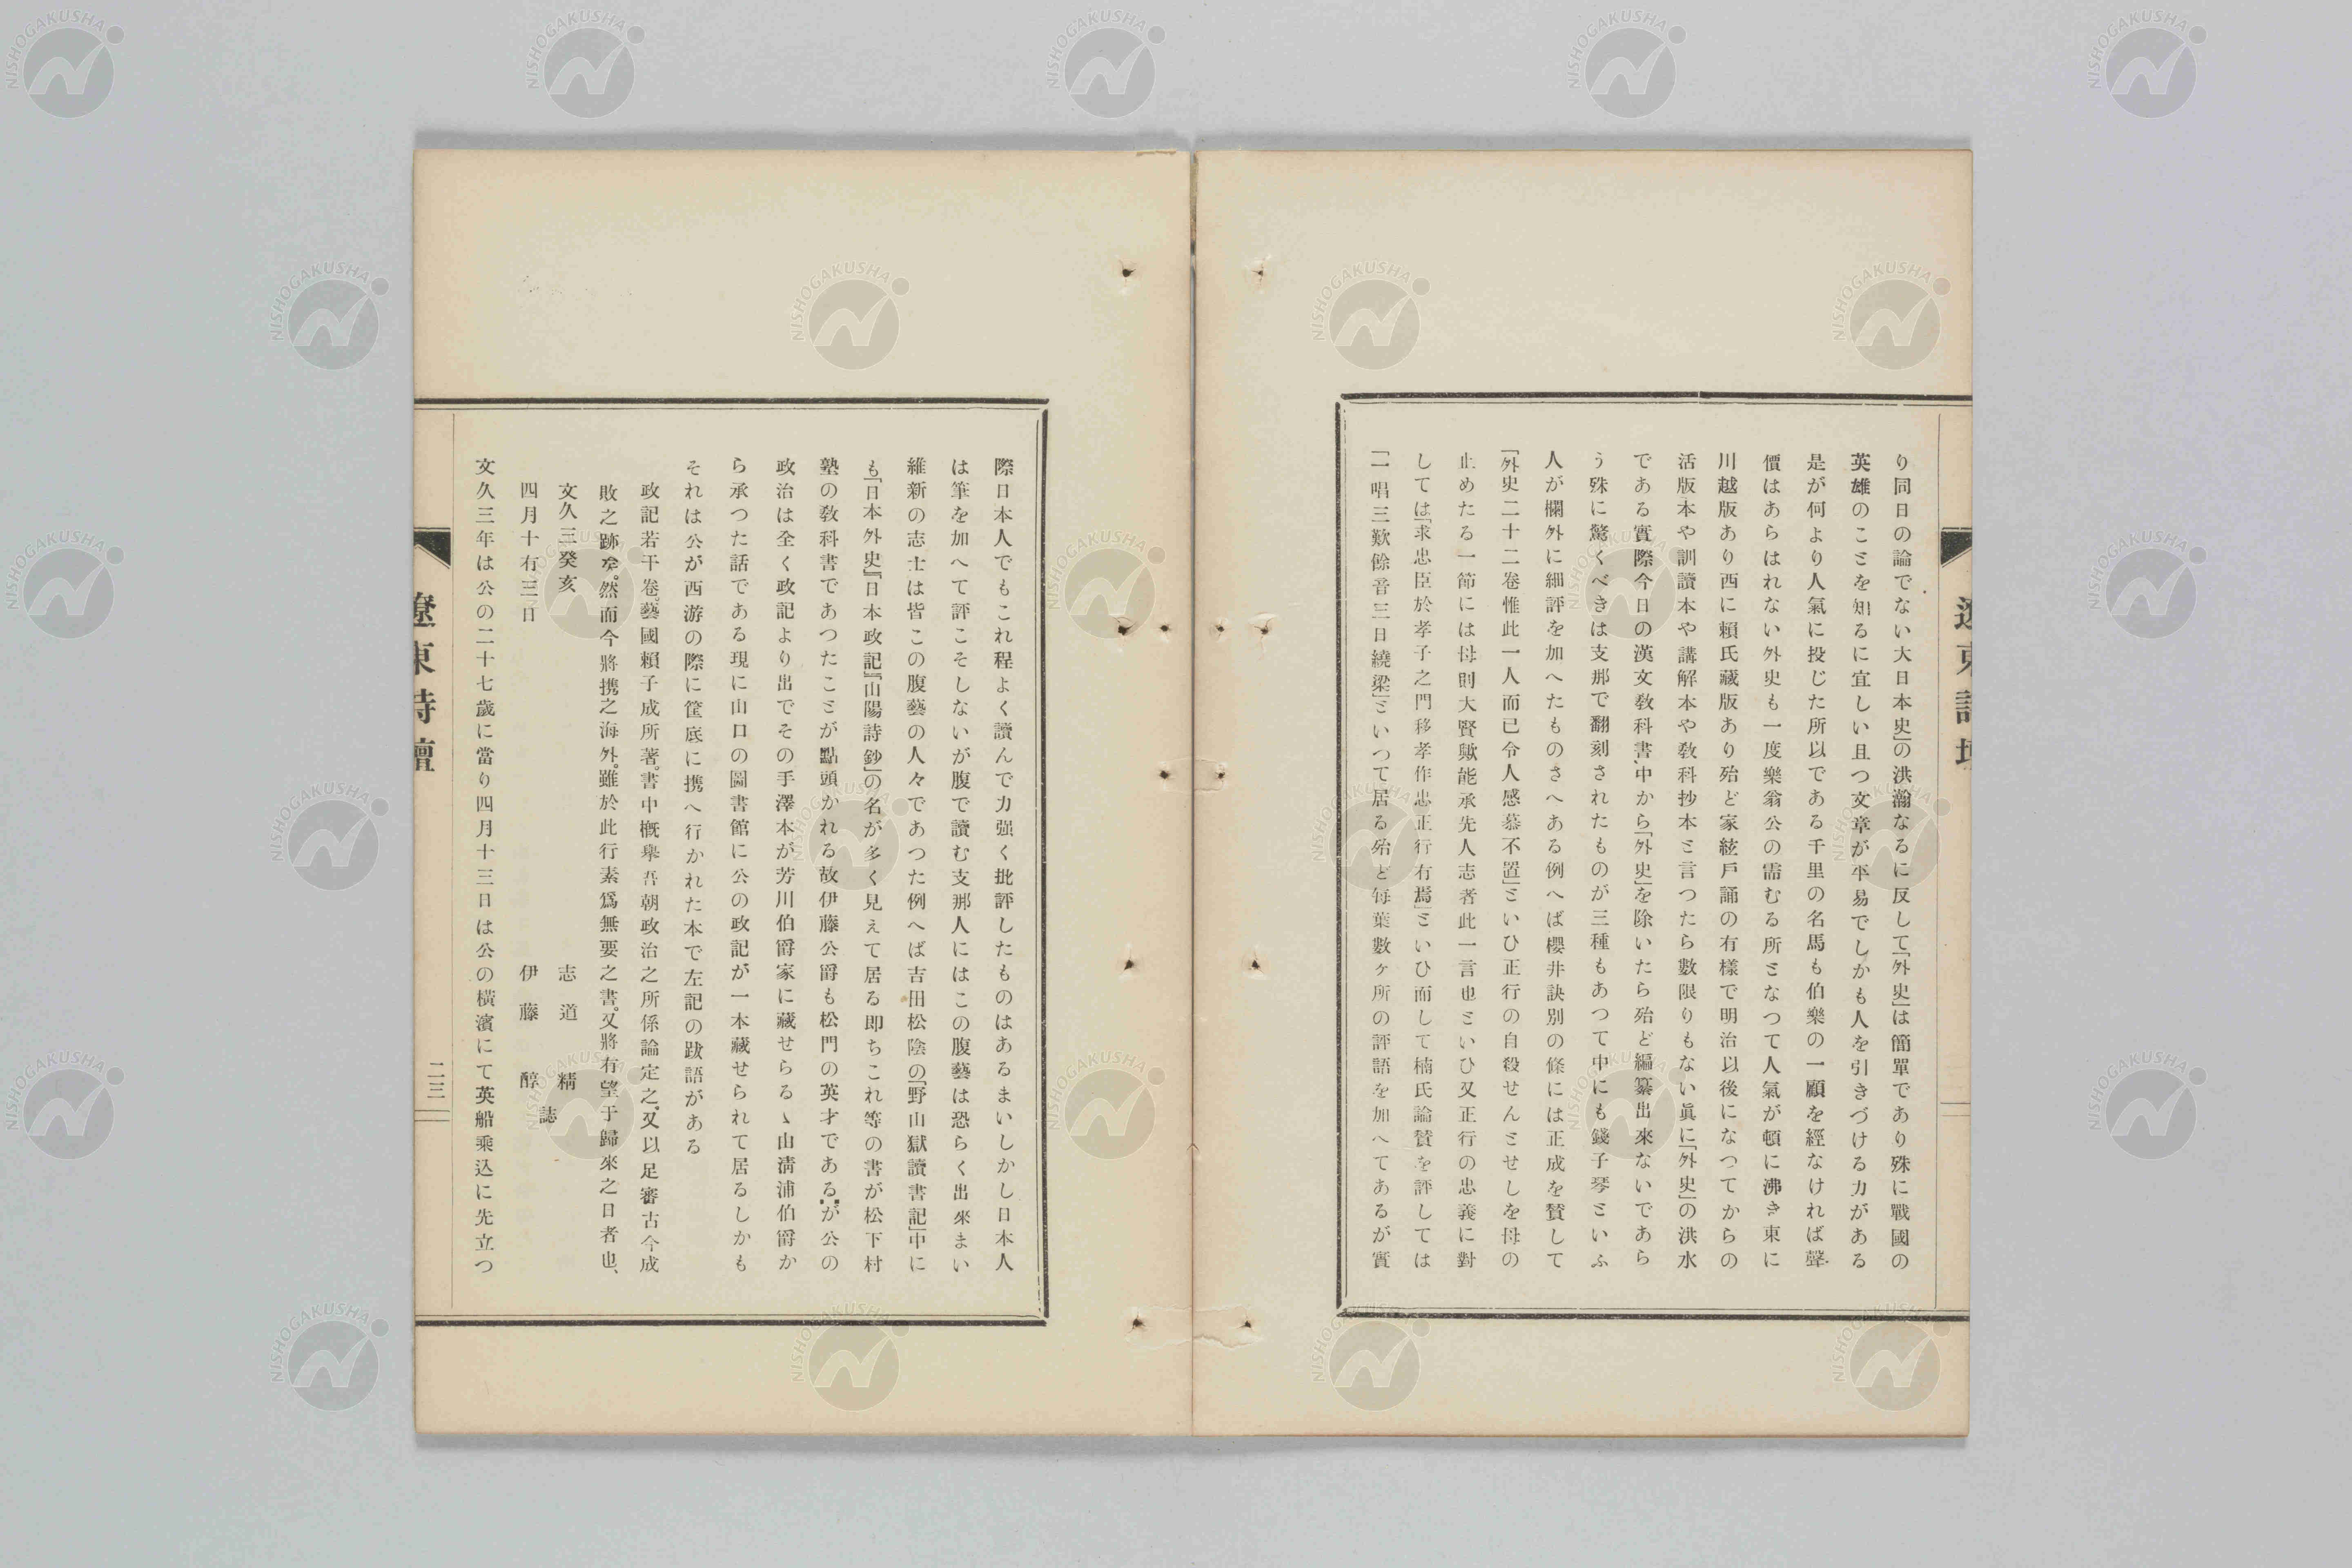 り同日の論でない大日本史」の洪瀚なるに反して「外史」は簡單であり殊に戰國の
英雄のことを知るに宜しい且つ文章が平易でしかも人を引きづける力がある
是が何より人氣に投じた所以である千里の名馬も伯樂の一顧を經なければ聲
價はあらはれない外史も一度樂翁公の需むる所となつて人氣が頓に沸き東に
川越版あり西に賴氏藏版あり殆ど家絃戶誦の有樣で明治以後になつてからの
活版本や訓讀本や講解本や敎科抄本と言つたら數限りもない眞に「外史」の洪水
である實際今日の漢文敎科書、中から「外史」を除いたら殆ど編纂出來ないであら
う殊に驚くべきは支那で翻刻されたものが三種もあつて中にも錢子琴といふ
人が欄外に細評を加へたものさへある例へば櫻井訣別の條には正成を賛して
「外史二十二卷惟此一人而已令人感慕不置」といひ正行の自殺せんとせしを母の
止めたる一節には母則大賢歟能承先人志者此一言也といひ又正行の忠義に對
しては「求忠臣於孝子之門移孝作忠正行有焉」といひ而して楠氏論賛を評しては
「一唱三歎餘音三日繞梁」といつて居る殆ど每葉數ヶ所の評語を加へてあるが實
際日本人でもこれ程よく讀んで力强く批評したものはあるまいしかし日本人
は筆を加へて評こそしないが腹で讀む支那人にはこの腹藝は恐らく出來まい
維新の志士は皆この腹藝の人々であつた例へば吉田松陰の「野山獄讀書記」中に
も「日本外史」「日本政記」「山陽詩鈔」の名が多く見えて居る即ちこれ等の書が松下村
塾の敎科書であつたことが點頭かれる故伊藤公爵も松門の英才であるが公の
政治は全く政記より出でその手澤本が芳川伯爵家に藏せらるゝ由淸浦伯爵か
ら承つた話である現に山口の圖書館に公の政記が一本藏せられて居るしかも
それは公が西游の際に筐底に携へ行かれた本で左記の跋語がある
政記若干卷、藝國賴子成所著。書中槪擧吾朝政治之所係論定之。又以足審古今成
敗之跡矣。然而今將携之海外。雖於此行素爲無要之書。又將有望于歸來之日者也、
文久三癸亥 志道 精
四月十有三日 伊藤 醇
誌
文久三年は公の二十七歲に當り四月十三日は公の橫濱にて英船乘込に先立つ
遼東詩壇
二三
NISHOGAKUSHA